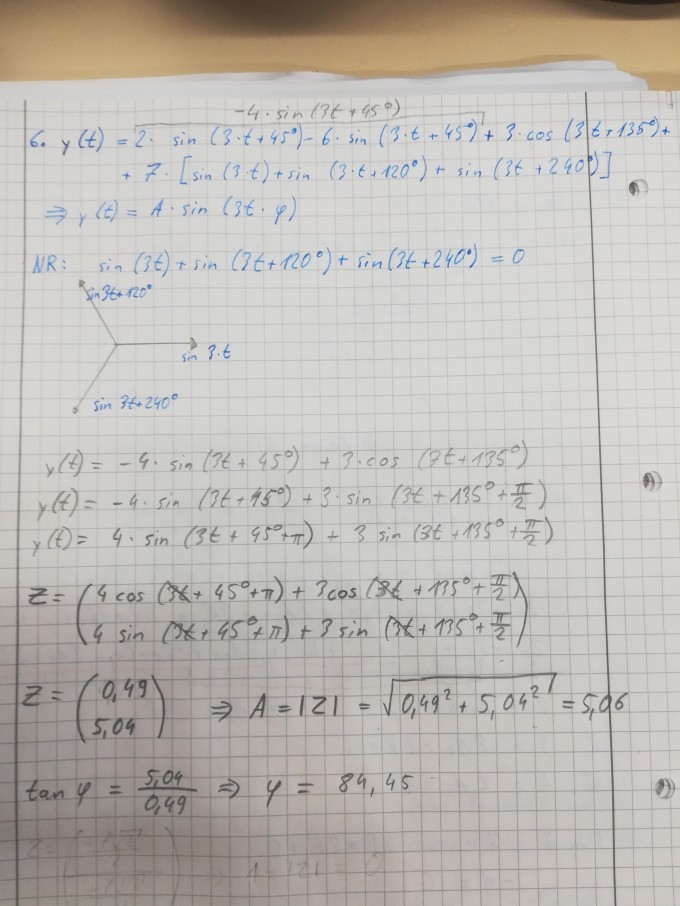 -4 · sin (3t + 45°)
6. y(t) = 2 · sin (3·t + 45°) - 6 · sin (3·t + 45°) + 3 · cos (3t + 135°) +
+ 7 · [sin (3·t) + sin (3·t + 120°) + sin (3t + 240°)]
⇒ y(t) = A · sin (3t · φ)
NR: sin (3t) + sin (3t + 120°) + sin (3t + 240°) = 0
sin 3t + 120°
sin 3·t
sin 3t + 240°
y(t) = -4 · sin (3t + 45°) + 3 · cos (7t + 135°)
y(t) = -4 · sin (3t + 45°) + 3 · sin (3t + 135° + π/2)
y(t) = 4 · sin (3t + 45° + π) + 3 sin (3t + 135° + π/2)
Z = (4 cos (3t + 45° + π) + 3 cos (3t + 135° + π/2)
4 sin (3t + 45° + π) + 3 sin (3t + 135° + π/2))
Z = (0,49
5,04) ⇒ A = |Z| = √(0,49² + 5,04²) = 5,06
tan φ = 5,04/0,49 ⇒ φ = 84,45